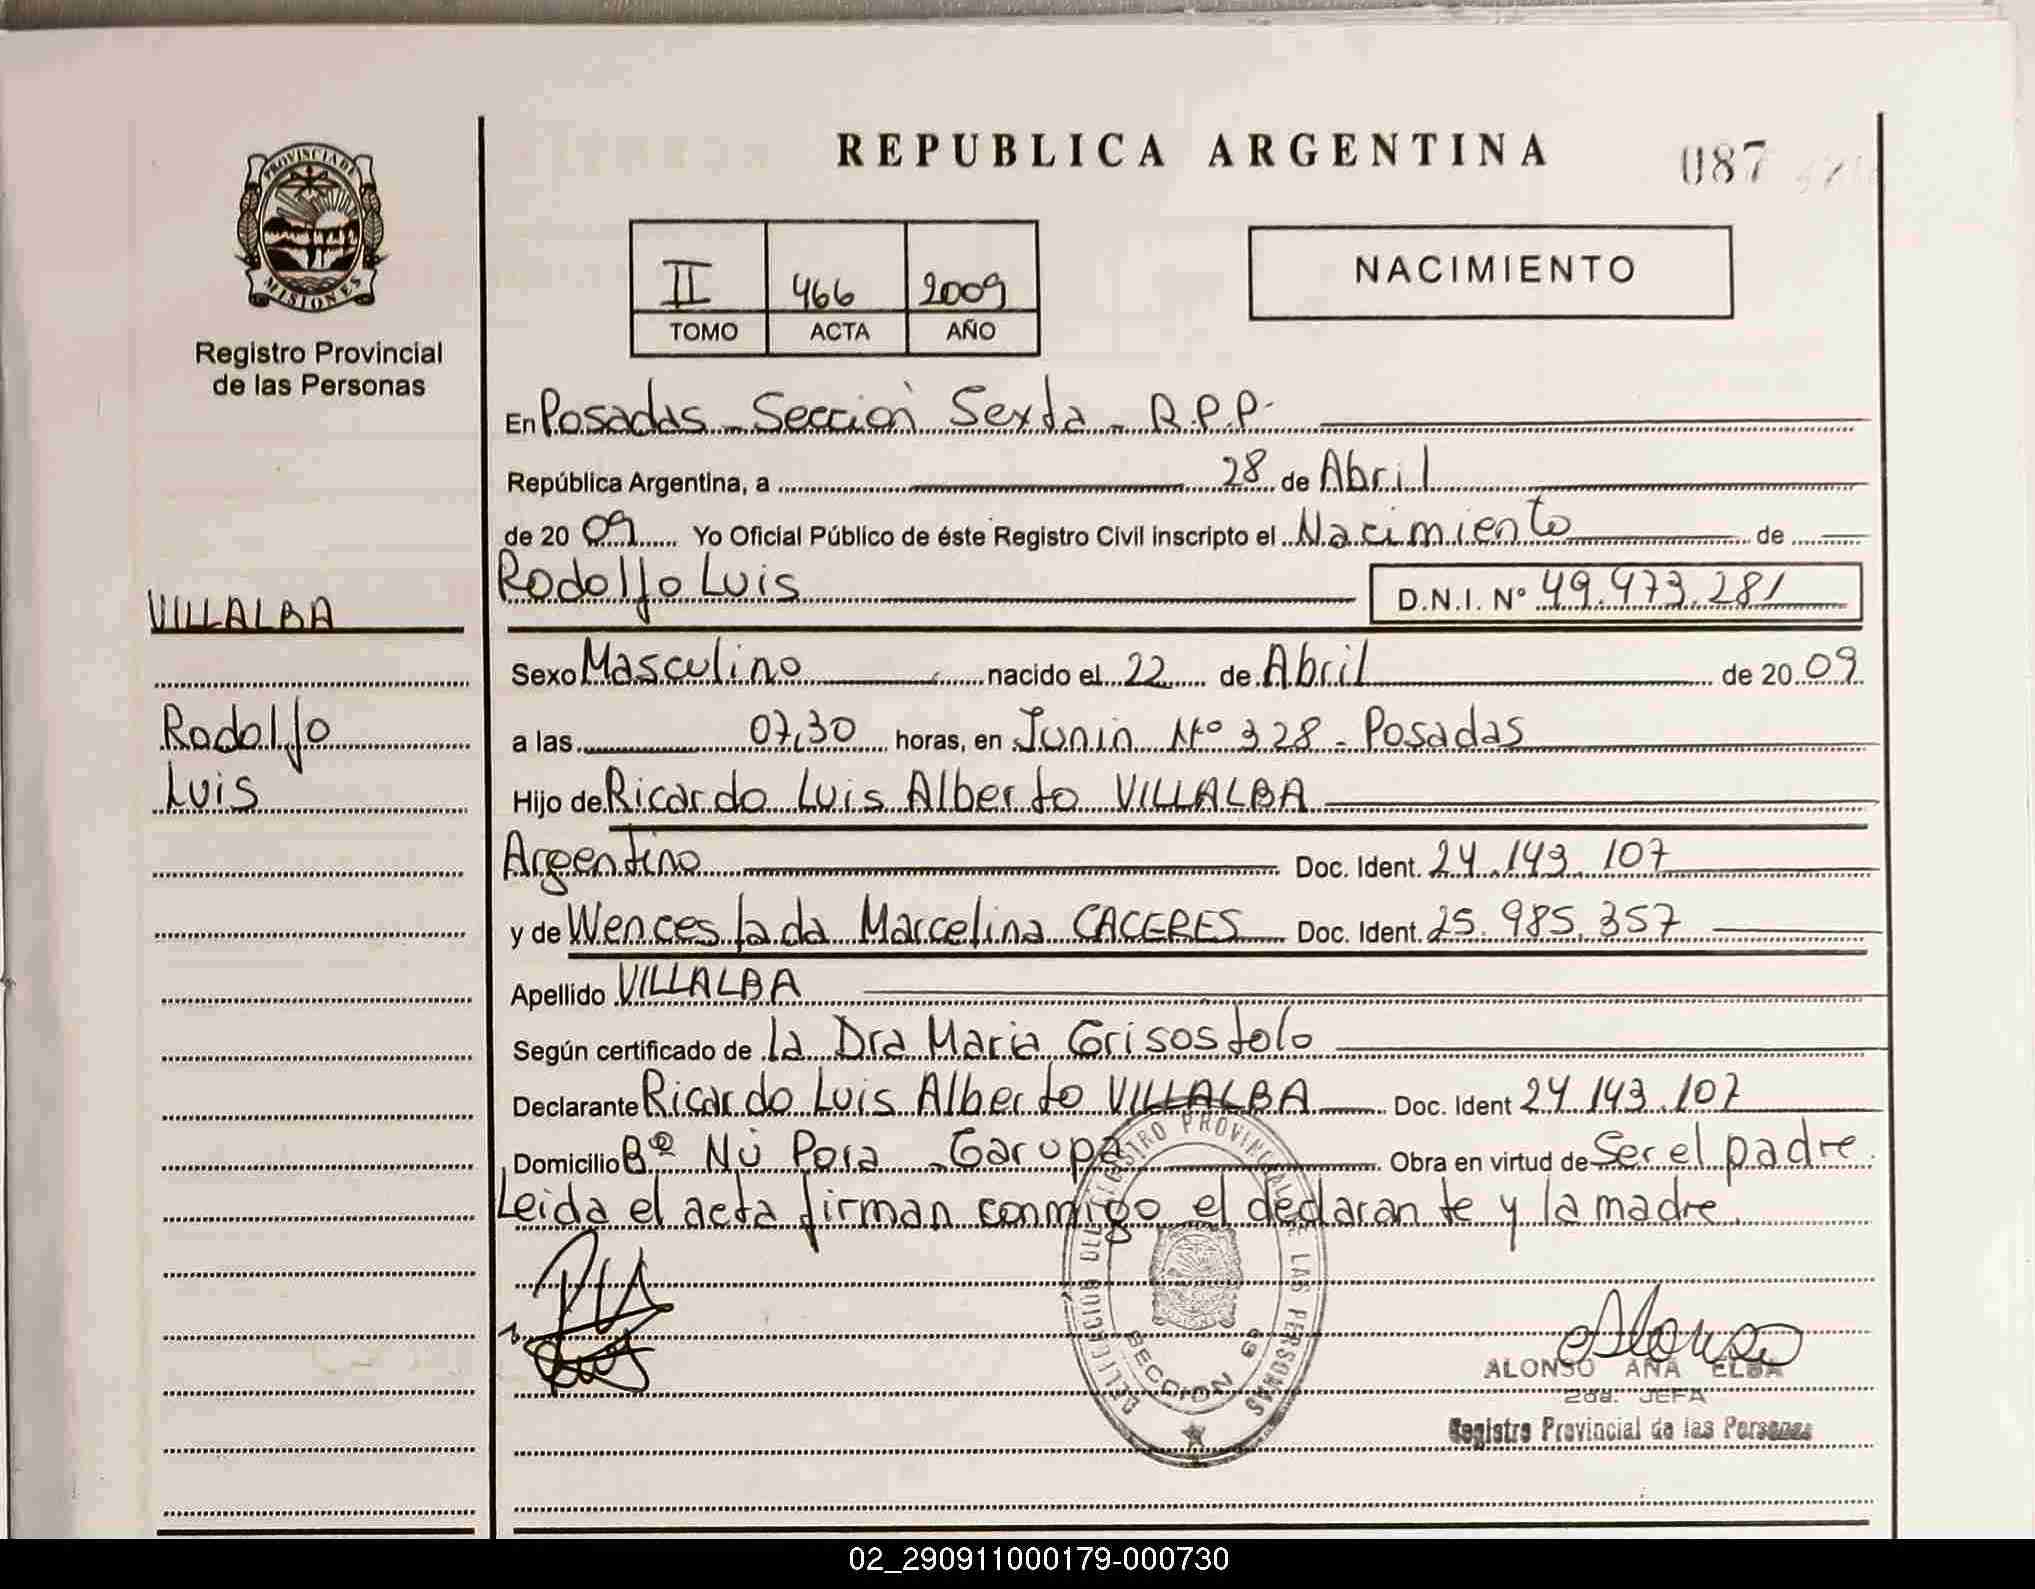 REPUBLICA ARGENTINA
087
PROVINCIA DE
MISIONES
Registro Provincial
de las Personas
II 466 2009
TOMO ACTA AÑO
NACIMIENTO
En Posadas - Sección Sexta - R.P.P.
República Argentina, a 28 de Abril
de 20 09 Yo Oficial Público de éste Registro Civil inscripto el Nacimiento de
Rodolfo Luis D.N.I. Nº 49.473.281
VILLALBA
Rodolfo
Luis
Sexo Masculino nacido el 22 de Abril de 20 09
a las 07,30 horas, en Junin Nº 328 - Posadas
Hijo de Ricardo Luis Alberto VILLALBA
Argentino Doc. Ident. 24.143.107
y de Wenceslada Marcelina CACERES Doc. Ident. 25.985.357
Apellido VILLALBA
Según certificado de la Dra Maria Grisostolo
Declarante Ricardo Luis Alberto VILLALBA Doc. Ident 24.143.107
Domicilio Bº Ñu Pora - Garupa Obra en virtud de Ser el padre.
Leida el acta firman conmigo el declarante y la madre.
REGISTRO PROVINCIAL DE LAS PERSONAS
SECCION 6ª
Alonso
ALONSO ANA ELBA
2da. JEFA
Registro Provincial de las Personas
02_290911000179-000730